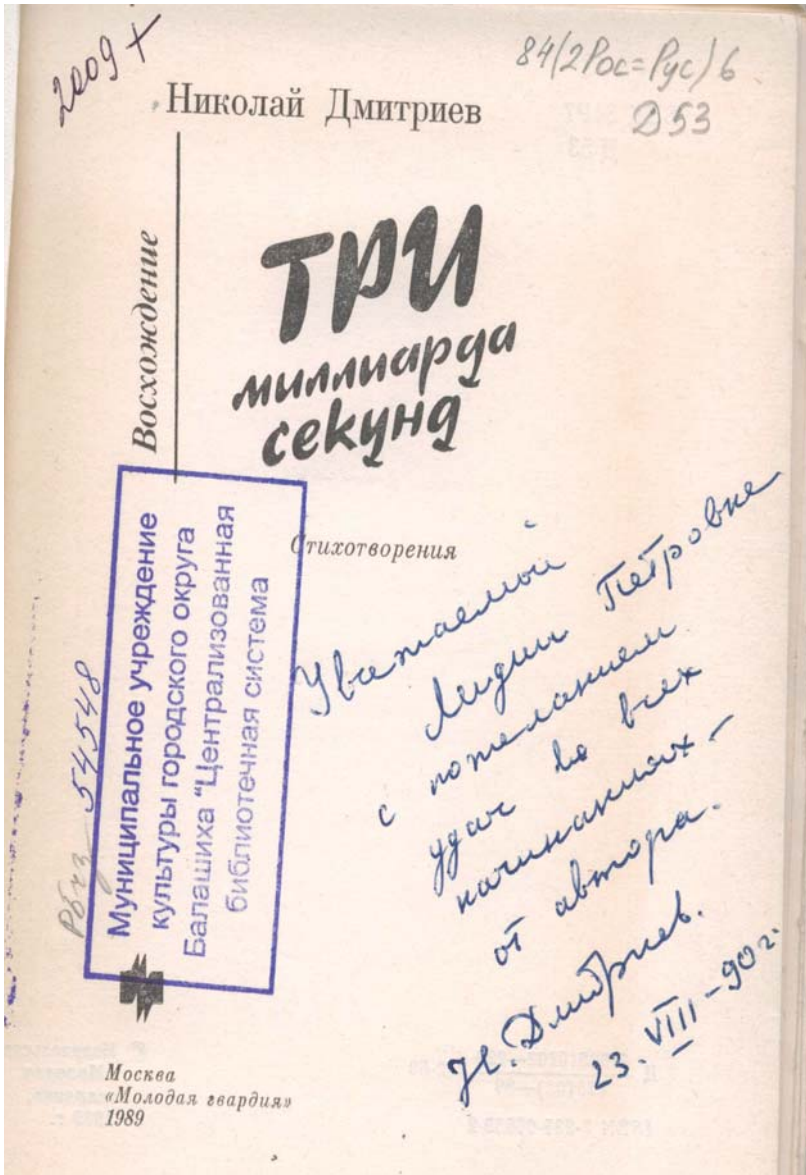 2009 +
84(2Рос=Рус)6
Д53
Николай Дмитриев
Восхождение
ТРИ
миллиарда
секунд
Стихотворения
Муниципальное учреждение
культуры городского округа
Балашиха "Централизованная
библиотечная система
54548
Уважаемой
Лидии Петровне
с пожеланием
удач во всех
начинаниях –
от автора.
Н. Дмитриев.
23. VIII – 90 г.
Москва
«Молодая гвардия»
1989